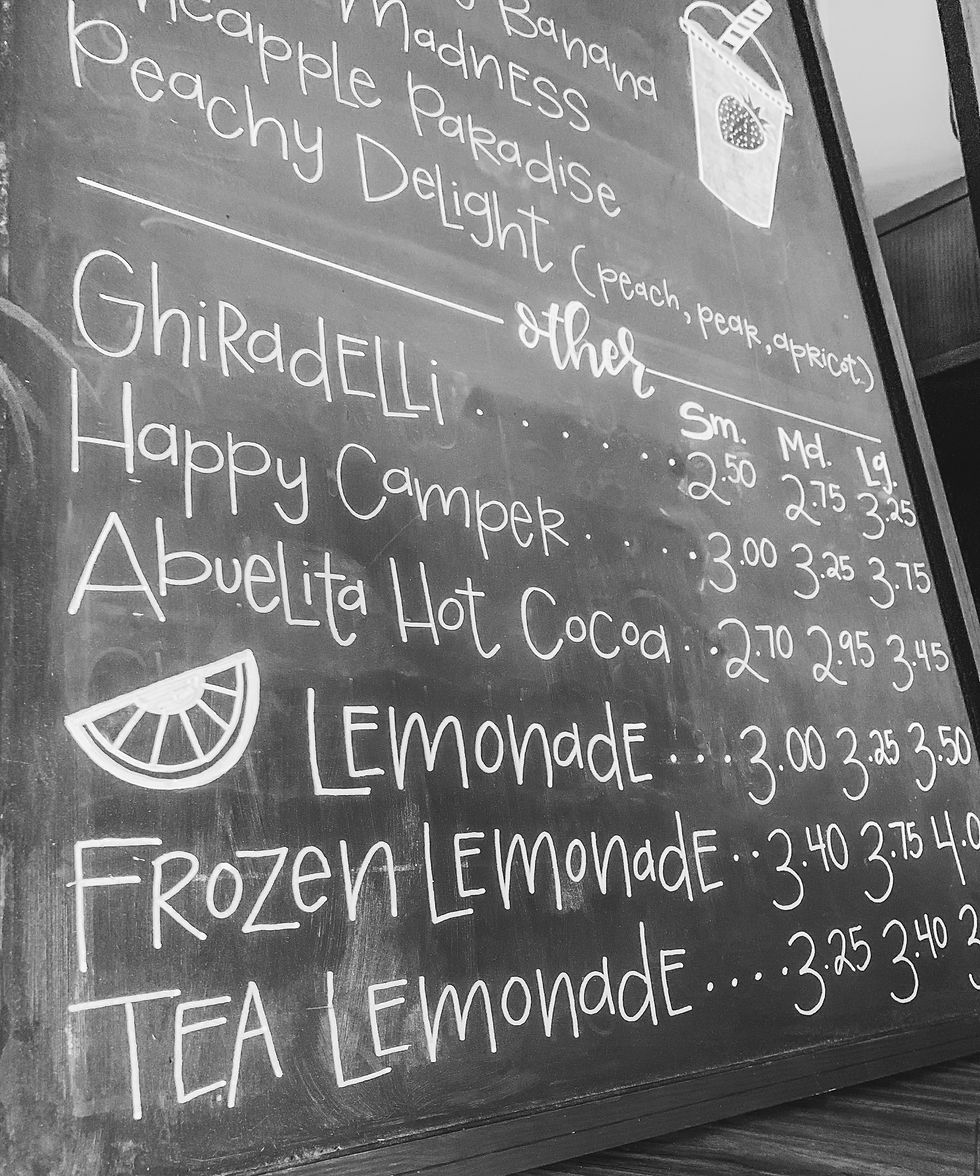 Banana
Madness
Pineapple Paradise
Peachy Delight (peach, pear, apricot)
other
Sm. Md. Lg.
Ghiradelli . . . . . 2.50 2.75 3.25
Happy Camper . . . . 3.00 3.25 3.75
Abuelita Hot Cocoa . . 2.70 2.95 3.45
Lemonade . . . 3.00 3.25 3.50
Frozen Lemonade . . 3.40 3.75 4.0
Tea Lemonade . . . . 3.25 3.40 3